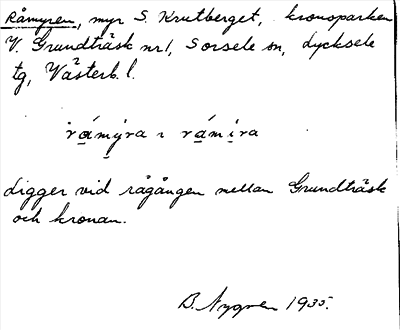 Råmyren, myr S. Krutberget, kronoparken
V. Grundträsk nr1, Sorsele sn, Lycksele
tg, Västerb. l.
råmýra ɿ råmira
Ligger vid rågången mellan Grundträsk
och kronan.
B. Nygren 1935.